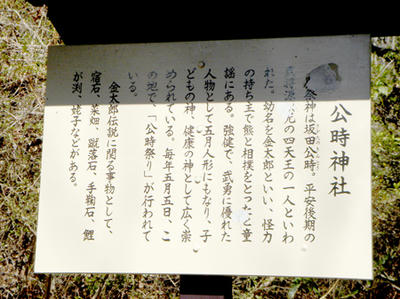 公時神社
祭神は坂田公時。平安後期の
光の四天王の一人といわ
れた。幼名を金太郎といい、怪力
の持ち主で熊と相撲をとったと童
謡にある。強健で、武勇に優れた
人物として五月人形にもなり、子
どもの神、健康の神として広く崇
められている。毎年五月五日、こ
の地で、「公時祭り」が行われて
いる。
金太郎伝説に関る事物として、
宿石、菜畑、蹴落石、手鞠石、鯉
が渕、姥子などがある。